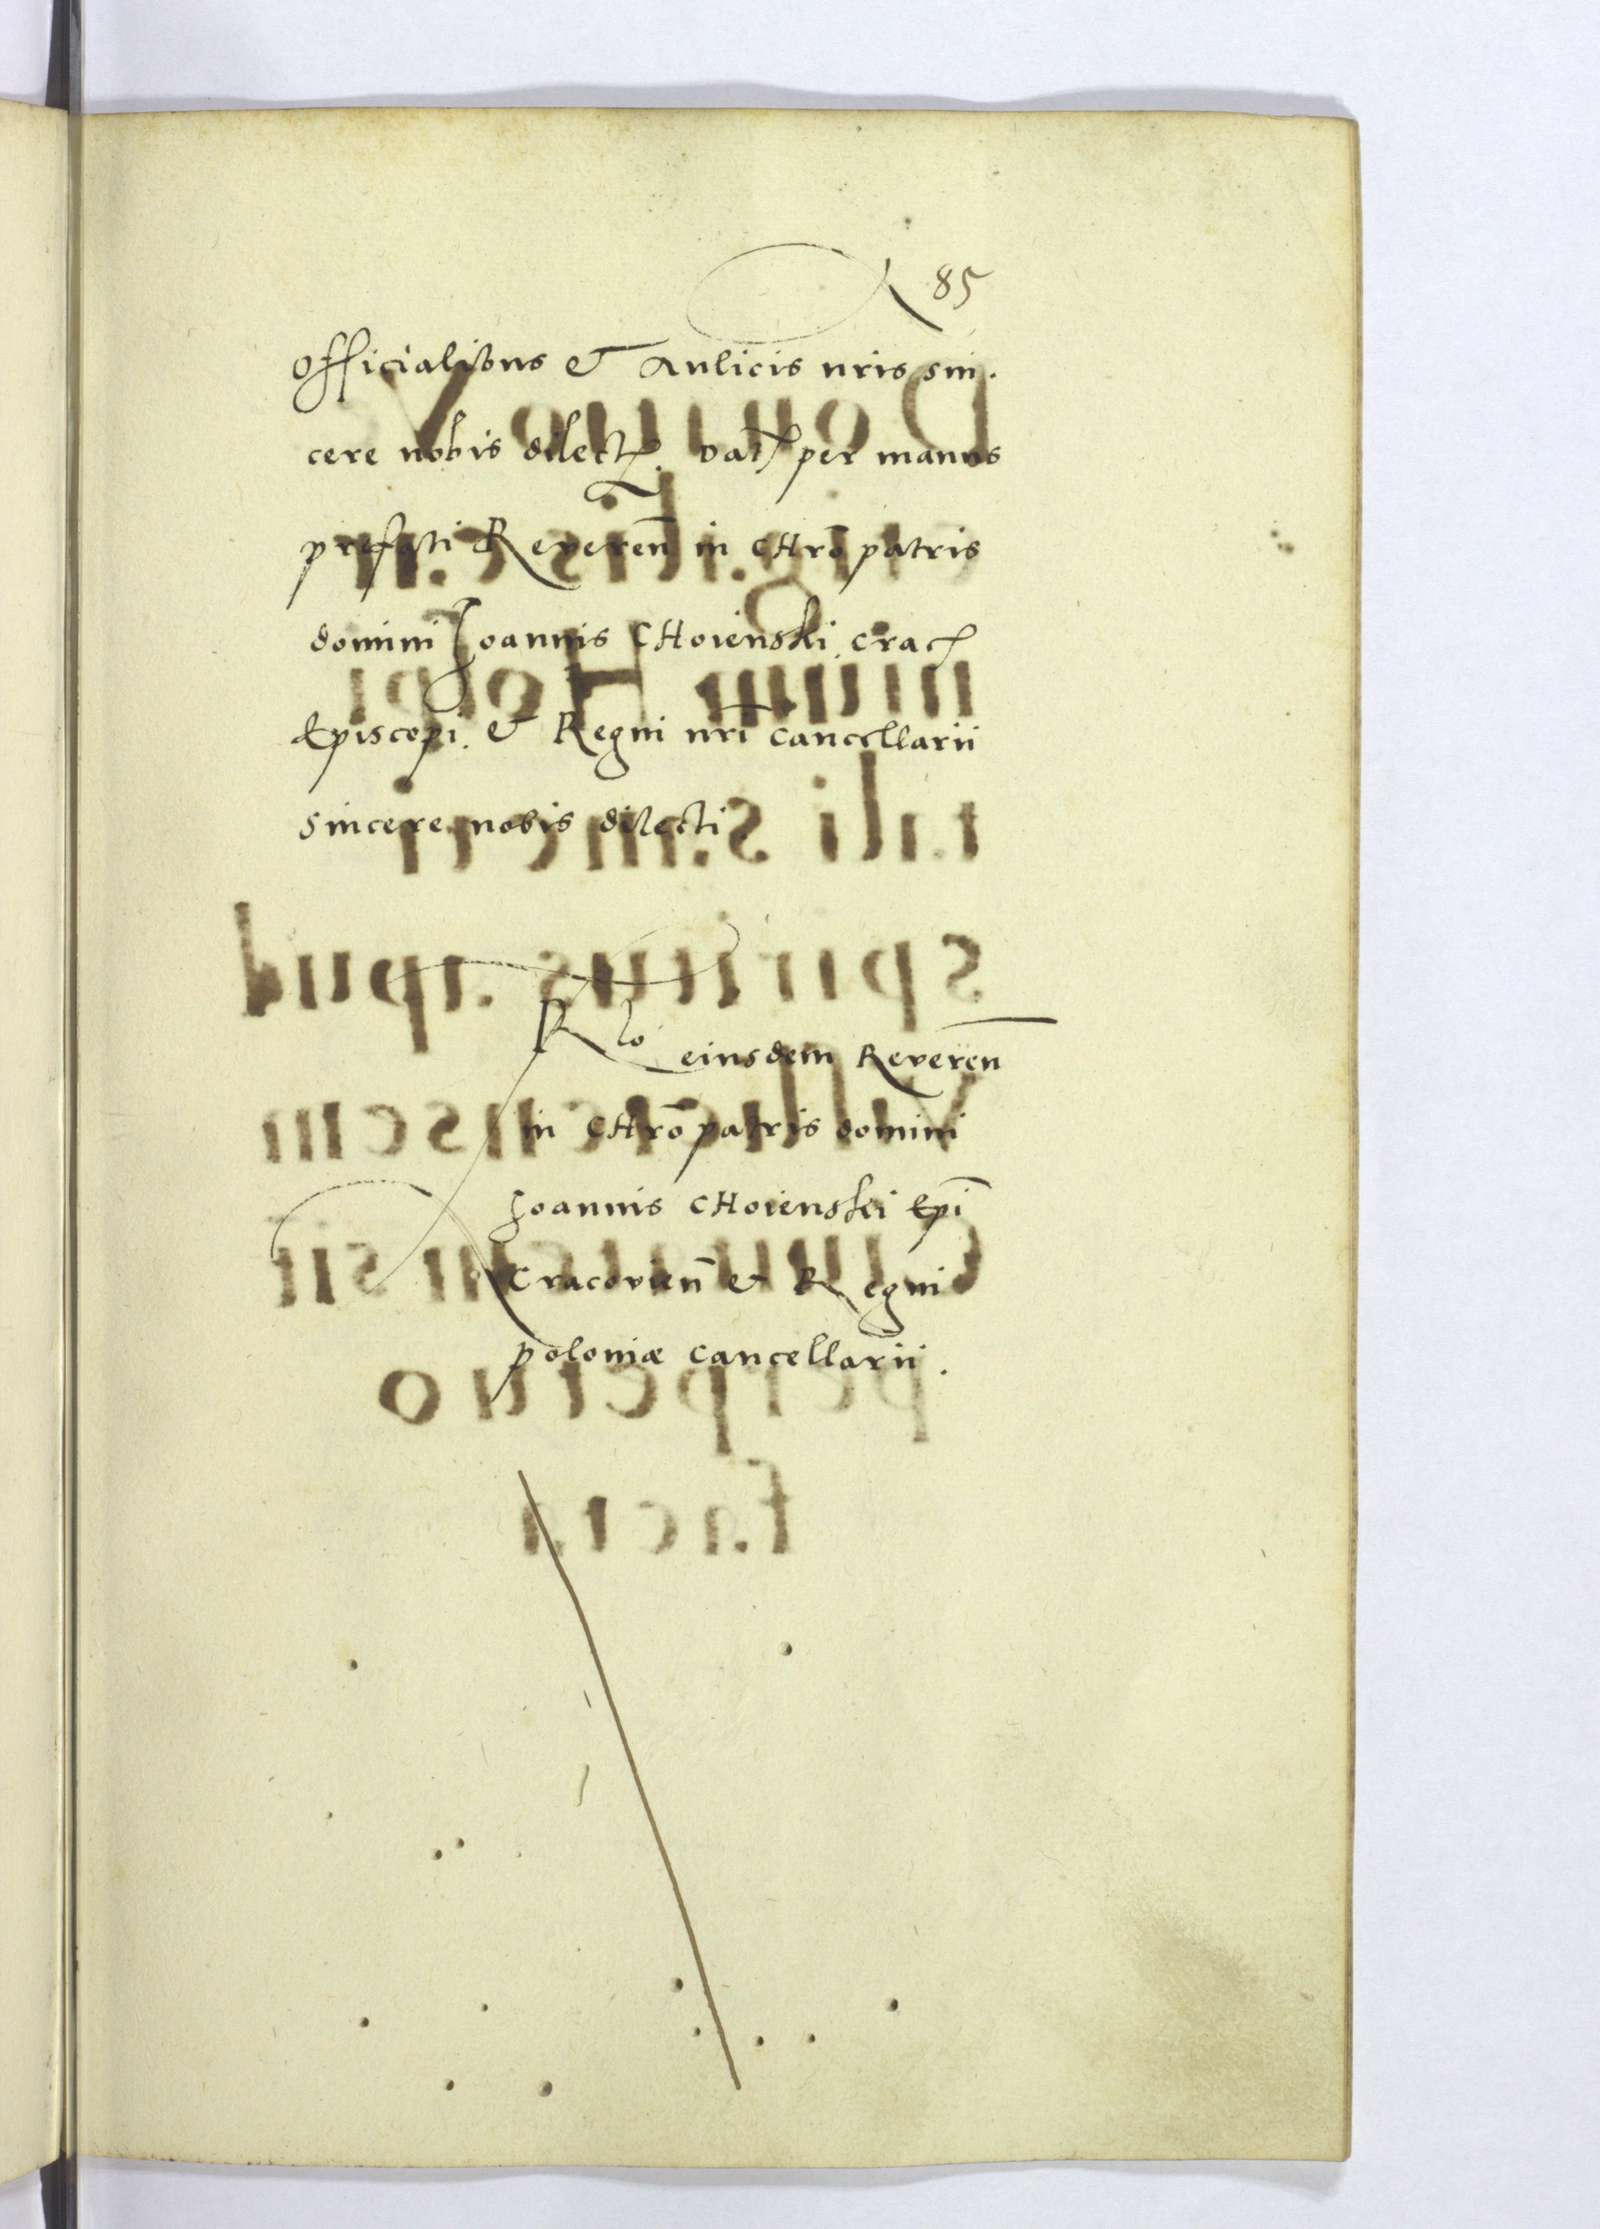 85
Officialibus et Aulicis nris sin.
cere nobis dilectꝭ. Datꝭ per manus
prefati Reveren̄ in CHro patris
domini Joannis CHoienski Cracꝭ
Episcopi. et Regni nri Cancellarii
sincere nobis dilecti.
Rlo eiusdem Reveren̄
in CHro patris domini
Joannis CHoienski Epi
Cracovien̄ et Regni
poloniæ Cancellarii.